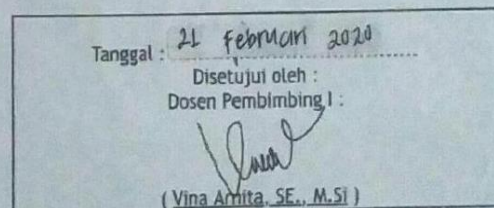 Tanggal : 21 Februari 2020
Disetujui oleh :
Dosen Pembimbing I :
( Vina Arnita, SE., M.Si )